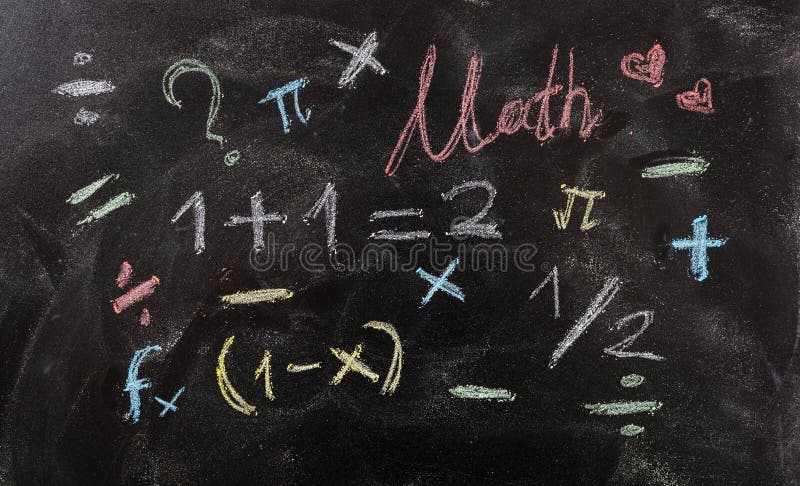 ÷ ? π × Math
= 1+1=2 π − +
÷ − × 1/2
fx (1-x) − ÷
dreamstime